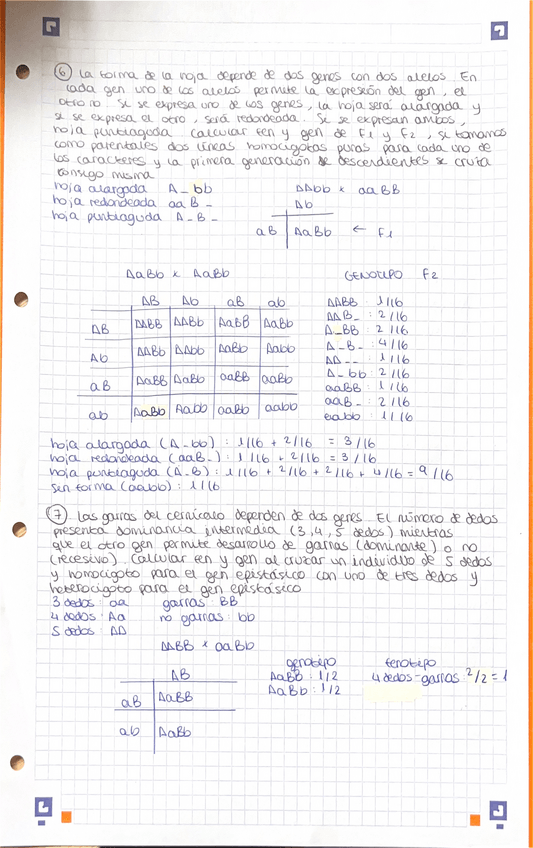 ⑥ La forma de la hoja depende de dos genes con dos alelos. En
cada gen uno de los alelos permite la expresión del gen, el
otro no. Si se expresa uno de los genes, la hoja será alargada y
si se expresa el otro, será redondeada. Si se expresan ambos,
hoja puntiaguda. Calcular fen y gen de F1 y F2, si tomamos
como parentales dos líneas homocigotas puras para cada uno de
los caracteres y la primera generación de descendientes se cruza
consigo misma
hoja alargada A_bb AAbb x aaBB
hoja redondeada aaB_ Ab
hoja puntiaguda A_B_
aB AaBb ← F1
AaBb x AaBb GENOTIPO F2
AB Ab aB ab AABB : 1/16
AB AABB AABb AaBB AaBb AAB_ : 2/16
A_BB : 2/16
Ab AABb AAbb AaBb Aabb A_B_ : 4/16
AA__ : 1/16
aB AaBB AaBb aaBB aaBb A_bb : 2/16
aaBB : 1/16
ab AaBb Aabb aaBb aabb aaB_ : 2/16
aabb : 1/16
hoja alargada (A_bb) : 1/16 + 2/16 = 3/16
hoja redondeada (aaB_) : 1/16 + 2/16 = 3/16
hoja puntiaguda (A_B) : 1/16 + 2/16 + 2/16 + 4/16 = 9/16
sin forma (aabb) : 1/16
⑦ Las garras del cernícalo dependen de dos genes. El número de dedos
presenta dominancia intermedia (3, 4, 5 dedos) mientras
que el otro gen permite desarrollo de garras (dominante) o no
(recesivo). Calcular fen y gen al cruzar un individuo de 5 dedos
y homocigoto para el gen epistásico con uno de tres dedos y
heterocigoto para el gen epistásico
3 dedos : aa garras : BB
4 dedos : Aa no garras : bb
5 dedos : AA
AABB x aaBb
genotipo fenotipo
AB AaBB : 1/2 4 dedos-garras : 2/2 = 1
aB AaBB AaBb : 1/2
ab AaBb